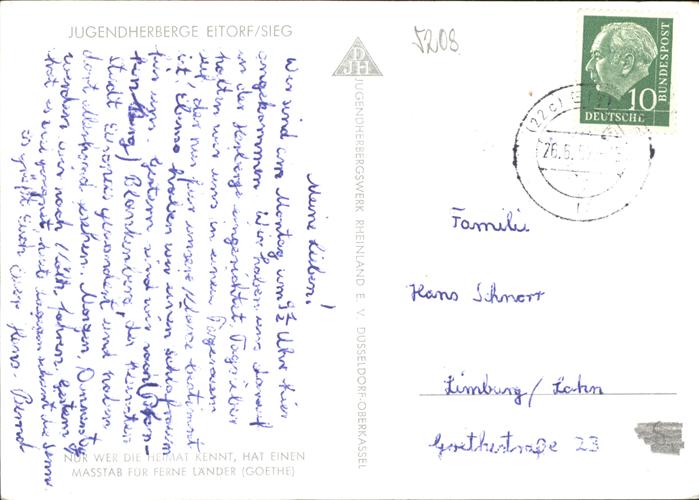 JUGENDHERBERGE EITORF/SIEG
5208
Meine Lieben!
Wir sind am Montag um 9½ Uhr hier
angekommen. Wir haben uns darauf
in der Herberge eingerichtet. Tagsüber
halten wir uns in einem Tagesraum
auf, der nur für unsere Klasse bestimmt
ist. Ebenso haben wir einen Schlafraum
für uns. Gestern sind wir nach
Blankenberg, der kleinsten
Stadt Europas gewandert und haben
dort allerhand gesehen. Morgen, Donnerstag
werden wir nach Köln fahren. Gestern
hat es nur geregnet, heute morgen scheint die Sonne.
Es grüßt Euch Euer Hans-Bernd
NUR WER DIE HEIMAT KENNT, HAT EINEN
MASSTAB FÜR FERNE LÄNDER (GOETHE)
DJH
JUGENDHERBERGSWERK RHEINLAND E. V. DÜSSELDORF-OBERKASSEL
DEUTSCHE
BUNDESPOST
10
(22c)
26.6.
Familie
Hans Schnorr
Limburg/Lahn
Goethestraße 23